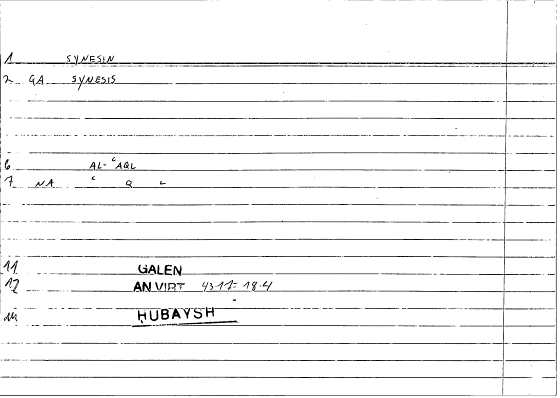 1 SYNESIN
2 GA SYNESIS
6 AL-ʿAQL
7 NA ʿ Q L
11 GALEN
12 AN VIRT 43 17= 18.4
14 ḤUBAYSH